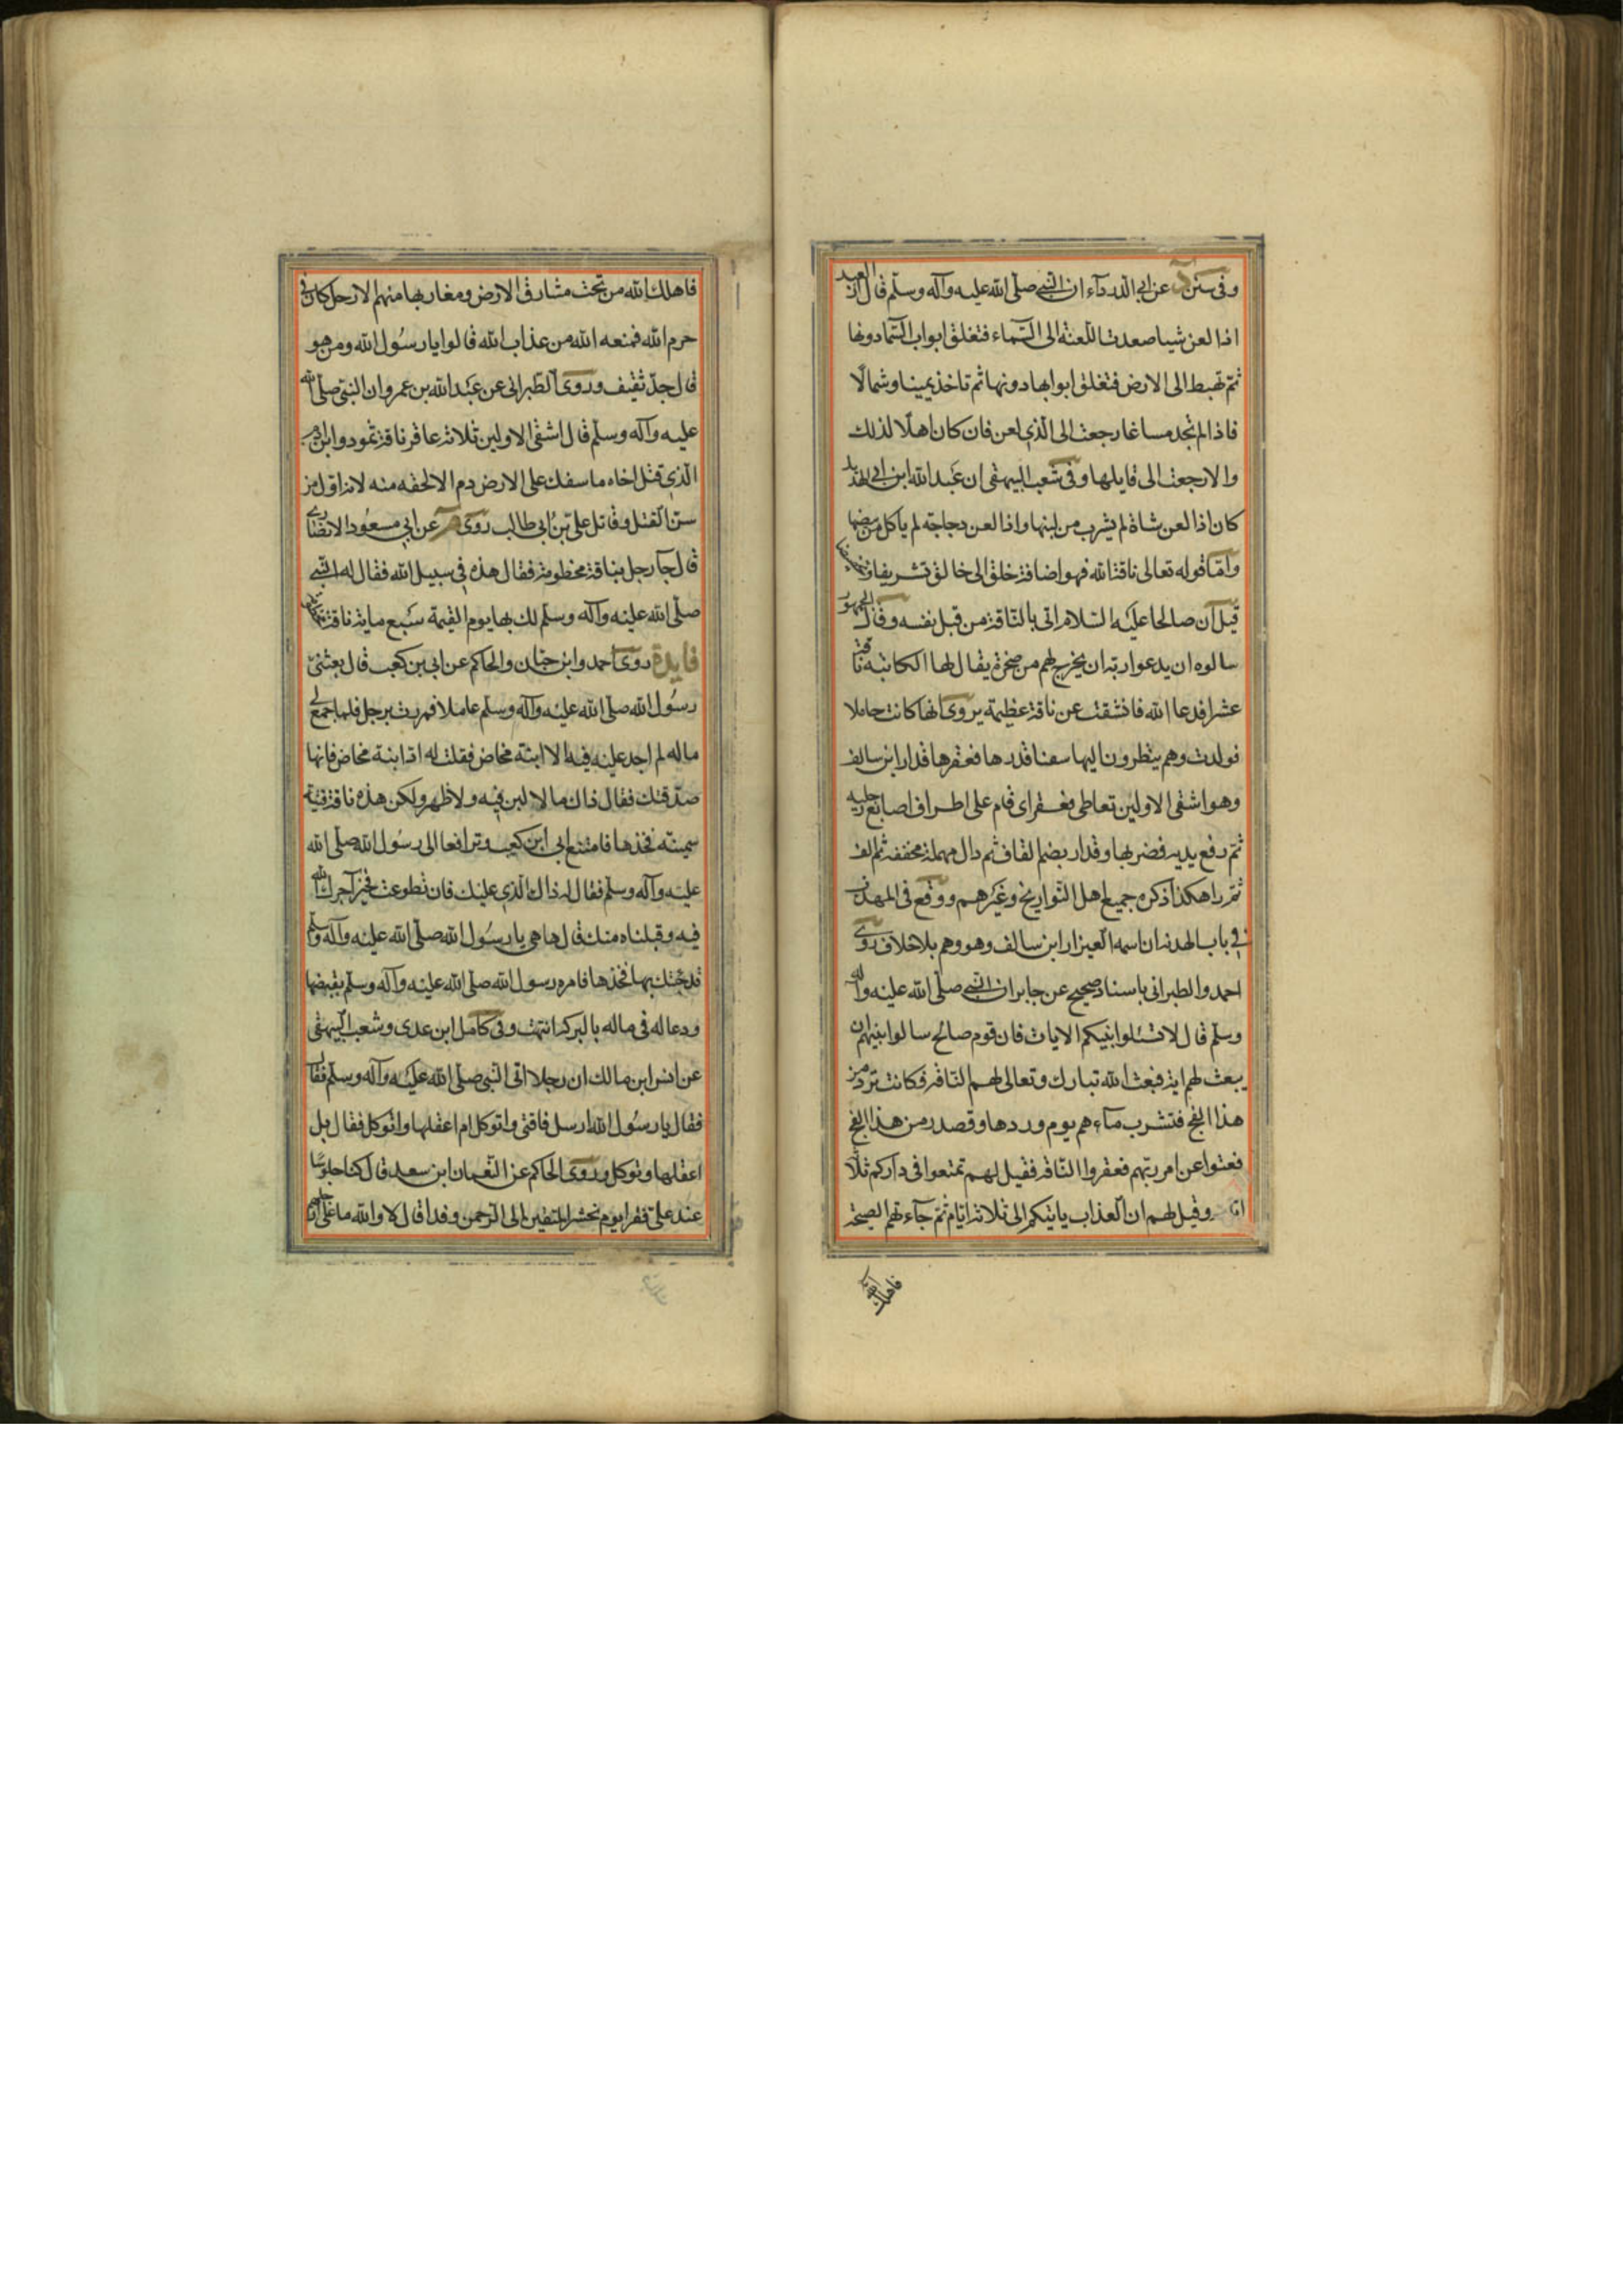 وفى سنن د عن ابى الدرداء ان النبى صلى الله عليه وآله وسلم قال ان العبد
اذا لعن شيا صعدت اللعنة الى السماء فتغلق ابواب السماء دونها
ثم تهبط الى الارض فتغلق ابوابها دونها ثم تاخذ يمينا وشمالا
فاذا لم تجد مساغا رجعت الى الذى لعن فان كان اهلا لذلك
والا رجعت الى قايلها وفى شعب البيهقى ان عبد الله ابن ابى الهذيل
كان اذا لعن شاة لم يشرب من لبنها واذا لعن دجاجة لم ياكل من بيضها
واما قوله تعالى ناقة الله فهو اضافة خلق الى خالق تشريفا وتخصيصا
قيل ان صالحا عليه السلام اتى بالناقة من قبل نفسه وقال الجمهور
سالوه ان يدعوا ربه ان يخرج لهم من صخرة يقال لها الكاتبة ناقة
عشرا فدعا الله فانشقت عن ناقة عظيمة يروى انها كانت حاملا
فولدت وهم ينظرون اليها سقبا قدرها فعقرها قدار ابن سالف
وهو اشقى الاولين تعاطى فعقر اى قام على اطراف اصابع رجليه
ثم رفع يديه فضربها وقدار بضم القاف ثم دال مهملة مخففة ثم الف
ثم را هكذا ذكره جميع اهل التواريخ وغيرهم ووقع فى المهذب
فى باب الهدنه ان اسمه العيزار ابن سالف وهو وهم بلا خلاف روى
احمد والطبرانى باسناد صحيح عن جابر ان النبى صلى الله عليه وآله
وسلم قال لا تسئلوا نبيكم الايات فان قوم صالح سالوا نبيهم ان
يبعث لهم اية فبعث الله تبارك وتعالى لهم الناقة فكانت ترد من
هذا الفج فتشرب ماءهم يوم وردها وتصدر من هذا الفج
فعتوا عن امر ربهم فعقروا الناقة فقيل لهم تمتعوا فى داركم ثلثة
وقيل لهم ان العذاب ياتيكم الى ثلاثة ايام ثم جآءتهم الصيحة
فاهلك الله
فاهلك الله من تحت مشارق الارض ومغاربها منهم الا رجل كان فى
حرم الله فمنعه الله من عذاب الله قالوا يا رسول الله ومن هو
قال جد ثقيف وروى الطبرانى عن عبد الله بن عمرو ان النبى صلى الله
عليه وآله وسلم قال اشقى الاولين ثلاثة عاقر ناقة ثمود وابن ادم
الذى قتل اخاه ما سفك على الارض دم الا لحقه منه لانه اول من
سن القتل وقاتل على بن ابى طالب روى م عن ابى مسعود الانصارى
قال جآء رجل بناقة مخطومة فقال هذه فى سبيل الله فقال له النبى
صلى الله عليه وآله وسلم لك بها يوم القيمة سبع ماية ناقة
فايدة روى احمد وابن حبان والحاكم عن ابى بن كعب قال بعثنى
رسول الله صلى الله عليه وآله وسلم عاملا فمررت برجل فلما جمع لى
ماله لم اجد عليه فيه الا ابنة مخاض فقلت له اد ابنة مخاض فانها
صدقتك فقال ذاك ما لا لبن فيه ولا ظهر ولكن هذه ناقة فتية
سمينه فخذها فامتنع ابى ابن كعب وترافعا الى رسول الله صلى الله
عليه وآله وسلم فقال له ذاك الذى عليك فان تطوعت بخير آجرك الله
فيه وقبلناه منك قال ها هى يا رسول الله صلى الله عليه وآله وسلم
قد جئتك بها فخذها فامره رسول الله صلى الله عليه وآله وسلم بقبضها
ودعا له فى ماله بالبركه انتهت وفى كامل ابن عدى وشعب البيهقى
عن انس ابن مالك ان رجلا اتى النبى صلى الله عليه وآله وسلم فقال
فقال يا رسول الله ارسل ناقتى واتوكل ام اعقلها واتوكل فقال بل
اعقلها وتوكل وروى الحاكم عن النعمان ابن سعد قال كنا جلوسا
عند على فقرا يوم نحشر المتقين الى الرحمن وفدا قال لا والله ما على